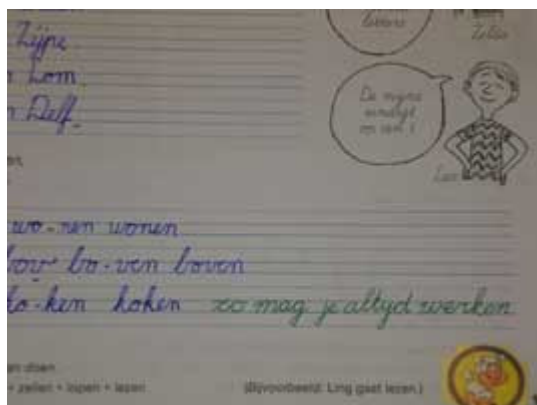 Zijpe
Lom.
Delf.
letters
Zelia
De mijne
eindigt
op een
Leo
wo-nen wonen
bov bo-ven boven
ko-ken koken zo mag je altijd werken
en doen.
• zeilen • lopen • lezen (Bijvoorbeeld: Ling gaat lezen.)